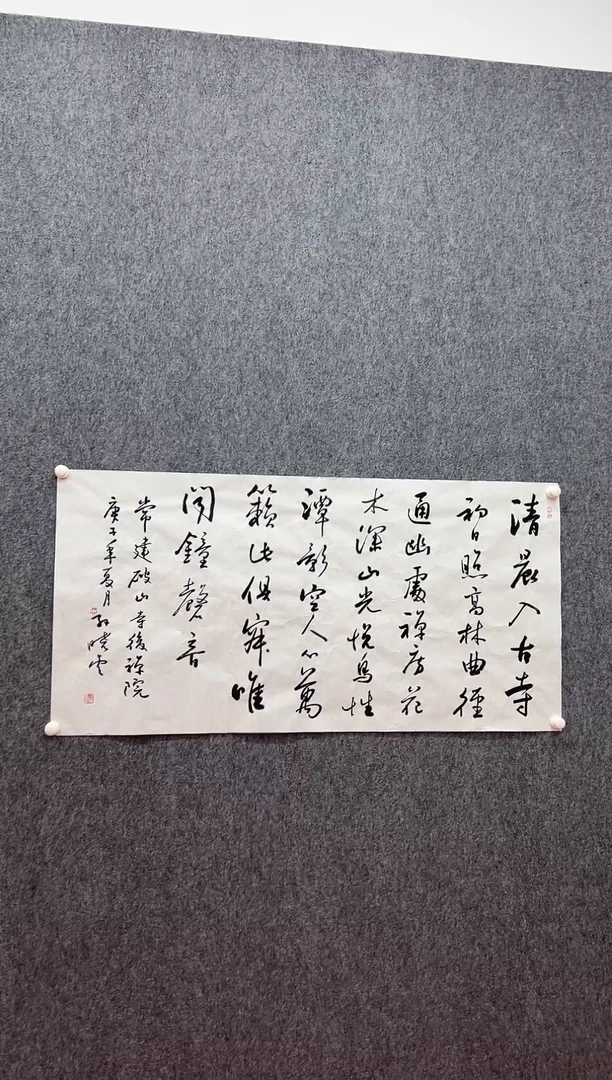 清晨入古寺
初日照高林曲徑
通幽處禪房花
木深山光悦鳥性
潭影空人心萬
籟此俱寂唯
聞鐘磬音
常建破山寺後禪院
庚子年夏月孫曉雲